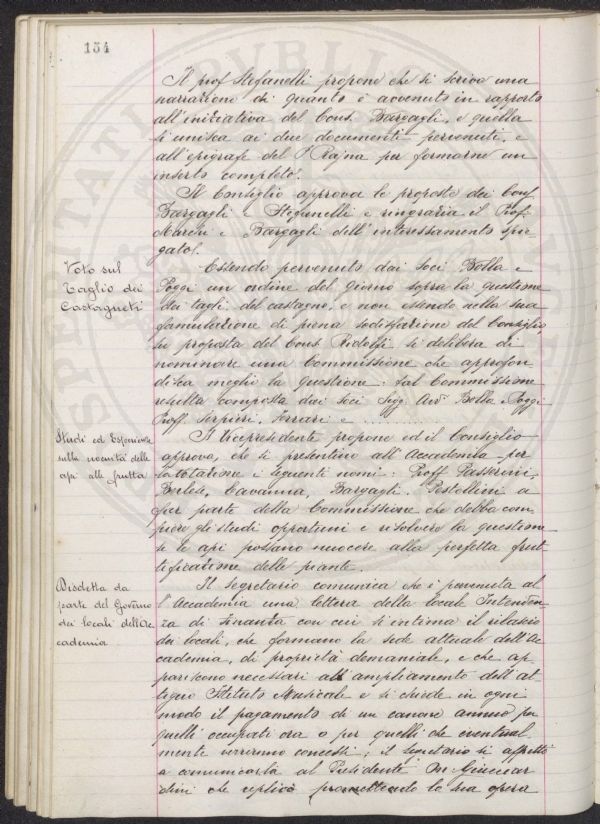 154
Il prof Stefanelli propone che si scriva una
narrazione di quanto è avvenuto in rapporto
all'iniziativa del Cons. Bargagli, e quella
si unisca ai due documenti pervenuti, e
all'epigrafe del P. Rajna per formarne un
inserto completo.
Il Consiglio approva le proposte dei Cons.
Bargagli e Stefanelli e ringrazia il Prof.
Marchi e Bargagli dell'interessamento spie
gato.
Voto sul
Taglio dei
Castagneti
Essendo pervenuto dai Soci Bolla e
Poggi un ordine del giorno sopra la questione
dei tagli del castagno, e non essendo nella sua
formulazione di piena sodisfazione del Consiglio,
su proposta del Cons. Ridolfi si delibera di
nominare una Commissione che approfon
disca meglio la questione: tal Commissione
resulta composta dei Soci Sigg. Avv. Bolla e Poggi
Proff. Serpieri, Ferrari e ..........
Studi ed Esperienze
sulla nocuità delle
api alle frutta
Il Vicepresidente propone ed il Consiglio
approva, che si presentino all'Accademia per
la votazione i seguenti nomi: Proff Passerini,
Berlese, Cavanna, Bargagli, Pestellini a
far parte della Commissione che debba com
piere gli studi opportuni e risolvere la questione
se le api possano nuocere alla perfetta frut
tificazione delle piante.
Disdetta da
parte del Governo
dei locali dell'Ac
cademia
Il Segretario comunica che è pervenuta al
l'Accademia una lettera della locale Intenden
za di Finanza con cui si intima il rilascio
dei locali, che formano la sede attuale dell'Ac
cademia, di proprietà demaniale, e che ap
pariscono necessari all'ampliamento dell'at
tiguo Istituto Musicale e si chiede in ogni
modo il pagamento di un canone annuo per
quelli occupati ora o per quelli che eventual
mente verranno concessi; il segretario si affrettò
a comunicarla al Presidente On Guicciar
dini che replicò promettendo la sua opera